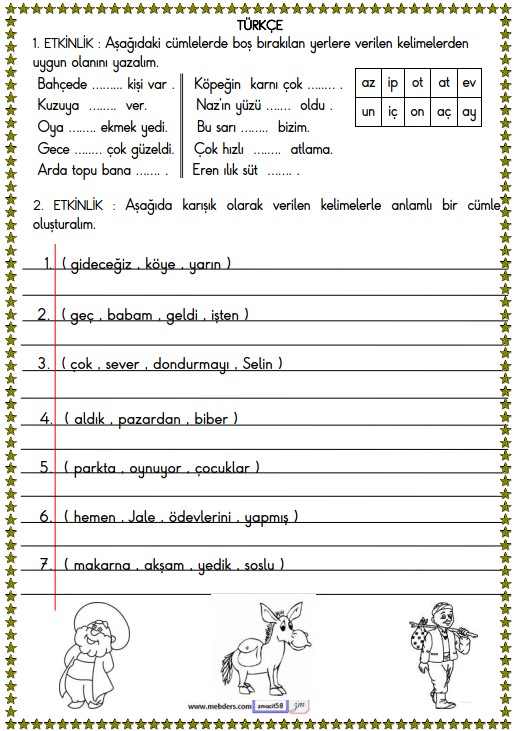 TÜRKÇE
1. ETKİNLİK : Aşağıdaki cümlelerde boş bırakılan yerlere verilen kelimelerden
uygun olanını yazalım.
Bahçede ......... kişi var .
Kuzuya ........ ver.
Oya ........ ekmek yedi.
Gece ........ çok güzeldi.
Arda topu bana ....... .
Köpeğin karnı çok ........ .
Naz'ın yüzü ....... oldu .
Bu sarı ........ bizim.
Çok hızlı ........ atlama.
Eren ılık süt ....... .
az ip ot at ev
un iç on aç ay
2. ETKİNLİK : Aşağıda karışık olarak verilen kelimelerle anlamlı bir cümle
oluşturalım.
1. ( gideceğiz , köye , yarın )
2. ( geç , babam , geldi , işten )
3. ( çok , sever , dondurmayı , Selin )
4. ( aldık , pazardan , biber )
5. ( parkta , oynuyor , çocuklar )
6. ( hemen , Jale , ödevlerini , yapmış )
7. ( makarna , akşam , yedik , soslu )
www.mebders.com zmacit58 zm